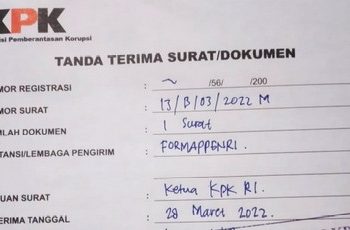 KPK
isi Pemberantasan Korupsi
TANDA TERIMA SURAT/DOKUMEN
MOR REGISTRASI : ~ /56/ /200
MOR SURAT : 13/B/03/2022 M
MLAH DOKUMEN : 1 Surat
TANSI/LEMBAGA PENGIRIM : FORMAPPENRI.
UAN SURAT : Ketua KPK RI.
ERIMA TANGGAL : 28 Maret 2022.